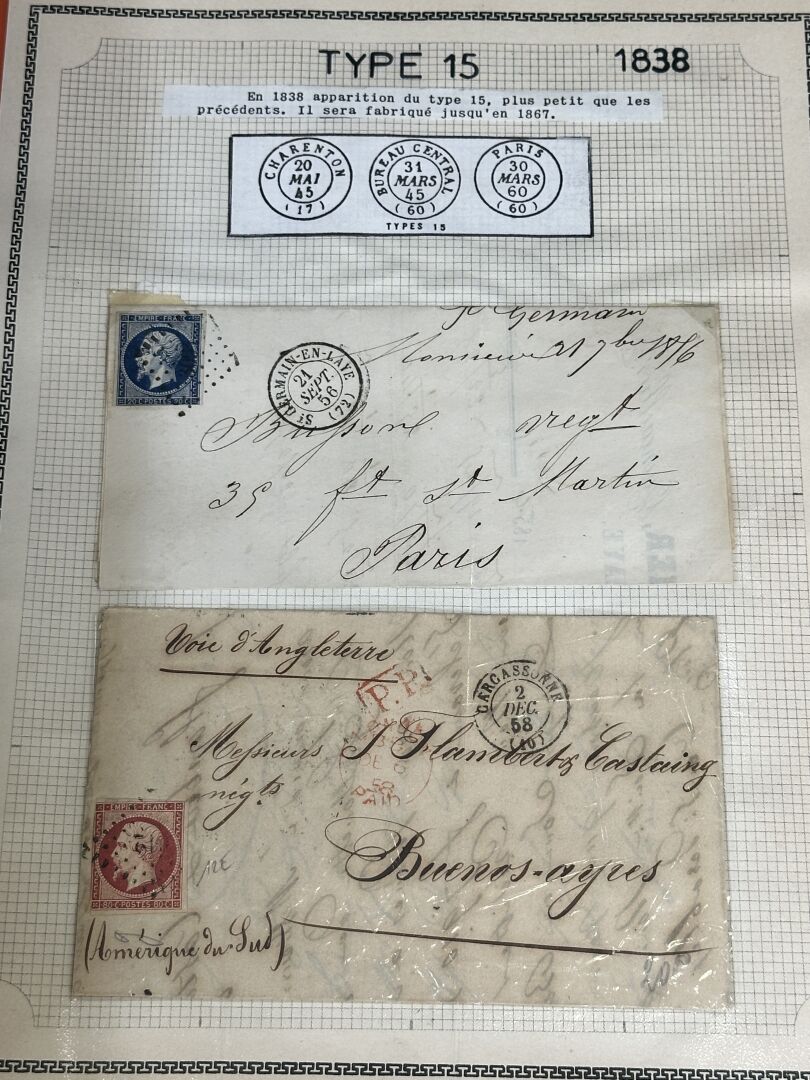 TYPE 15 1838
En 1838 apparition du type 15, plus petit que les
précédents. Il sera fabriqué jusqu'en 1867.
CHARENTON
20
MAI
45
(17)
BUREAU CENTRAL
31
MARS
45
(60)
PARIS
30
MARS
60
(60)
TYPES 15
St Germain
Monsieur 21 7bre 1856
EMPIRE FRANC
20 C POSTES 20 C
ST GERMAIN-EN-LAYE
21
SEPT.
56
(72)
Bussone negt
35 ft st Martin
Paris
Voie d'Angleterre
P.P.
CARCASSONNE
2
DEC.
58
(10)
Messieurs J. Flambert & Castaing
négts
PAID
EMPIRE FRANC
80 C POSTES 80 C
Buenos-ayres
(Amérique du Sud)